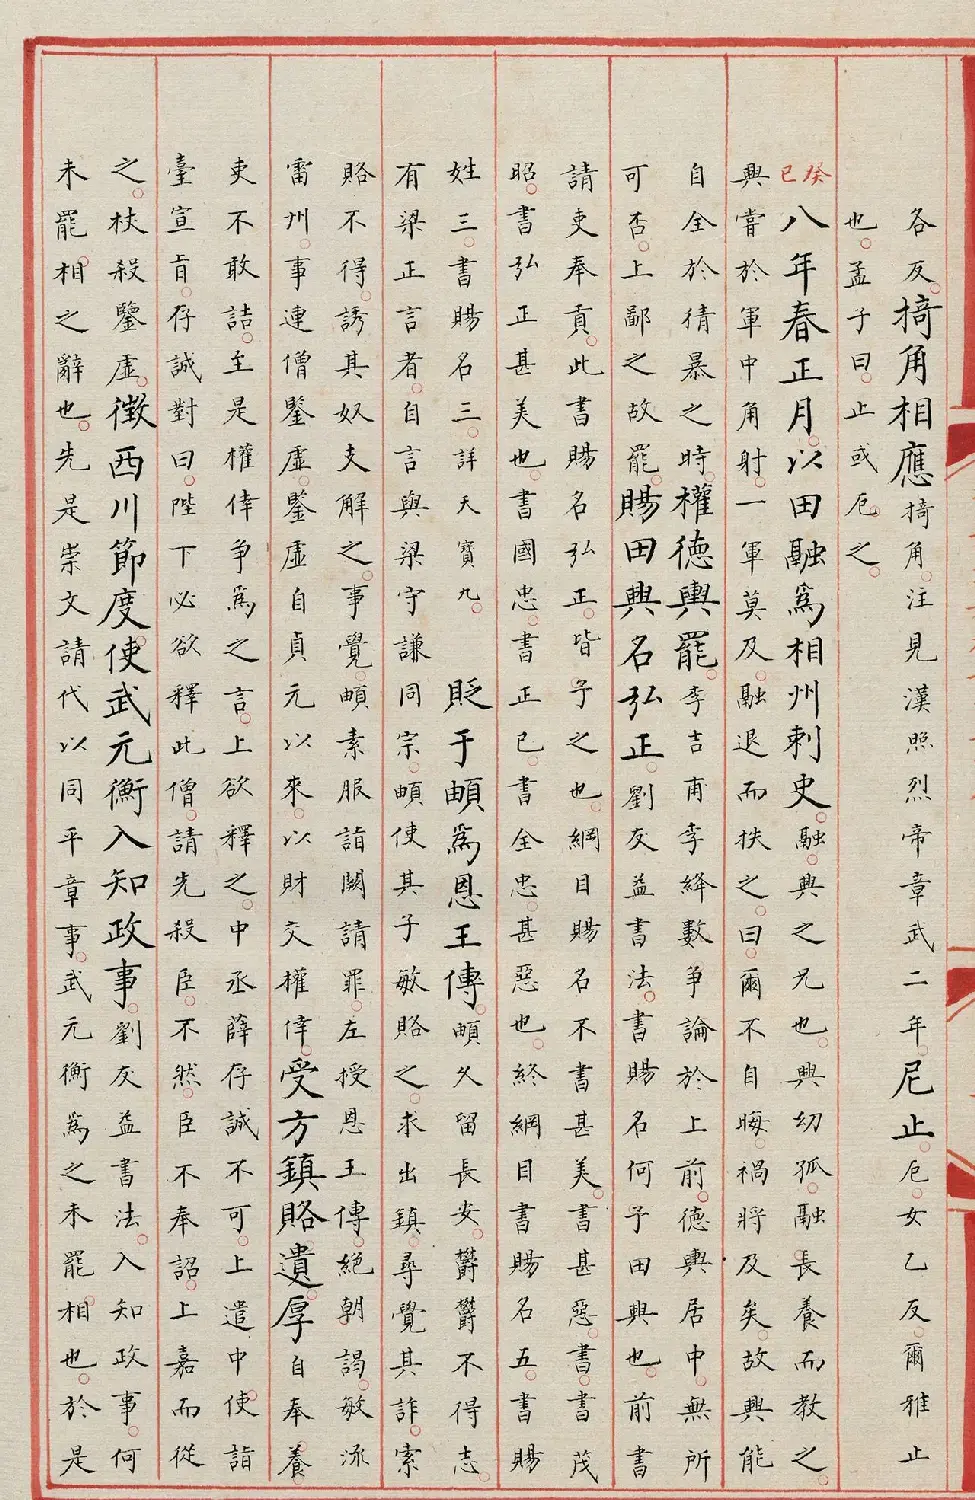 各反。掎角相應掎角。注見漢照烈帝章武二年。尼止。尼。女乙反。爾雅止
也。孟子曰。止或尼之。
癸巳八年春正月。以田融爲相州刺史。融。興之兄也。興幼孤。融長養而教之。
興嘗於軍中角射。一軍莫及。融退而抶之。曰。爾不自晦。禍將及矣。故興能
自全於猜暴之時。權德輿罷。李吉甫李絳數争論於上前。德輿居中。無所
可否。上鄙之故罷。賜田興名弘正。劉友益書法。書賜名何予田興也。前書
請吏奉貢。此書賜名弘正。皆予之也。綱目賜名不書甚美。書甚惡。書。書茂
昭。書弘正甚美也。書國忠。書正已。書全忠。甚惡也。終綱目書賜名五。書賜
姓三。書賜名三。詳天寶九。貶于頔爲恩王傅。頔久留長安。鬱鬱不得志。
有梁正言者。自言與梁守謙同宗。頔使其子敏賂之。求出鎮。尋覺其詐。索
賂不得。誘其奴支解之。事覺。頔素服詣闕請罪。左授恩王傅。絕朝謁。敏流
雷州。事連僧鑒虛。鑒虛自貞元以來。以財交權倖。受方鎮賂遺厚自奉養
吏不敢詰。至是權倖争爲之言。上欲釋之。中丞薛存誠不可。上遣中使詣
臺宣旨。存誠對曰。陛下必欲釋此僧。請先殺臣。不然。臣不奉詔。上嘉而從
之。杖殺鑒虛。徵西川節度使武元衡入知政事。劉友益書法。入知政事。何
未罷相之辭也。先是崇文請代以同平章事。武元衡爲之未罷相也。於是